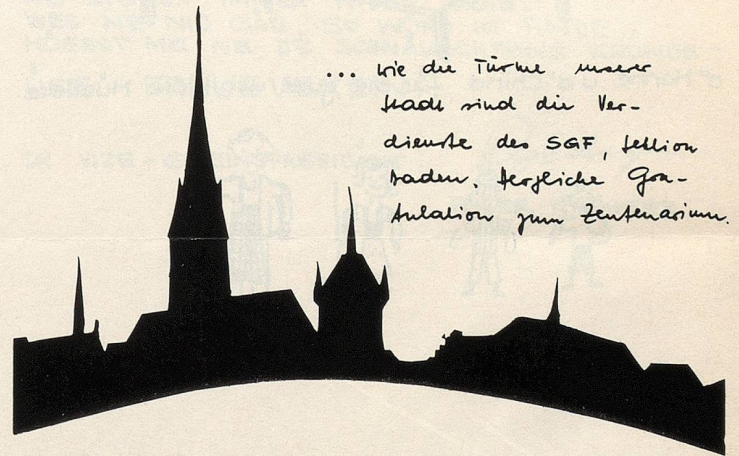 ... wie die Türme unserer
Stadt sind die Ver-
dienste des SGF, Sektion
Baden. Herzliche Gra-
tulation zum Zentenarium.